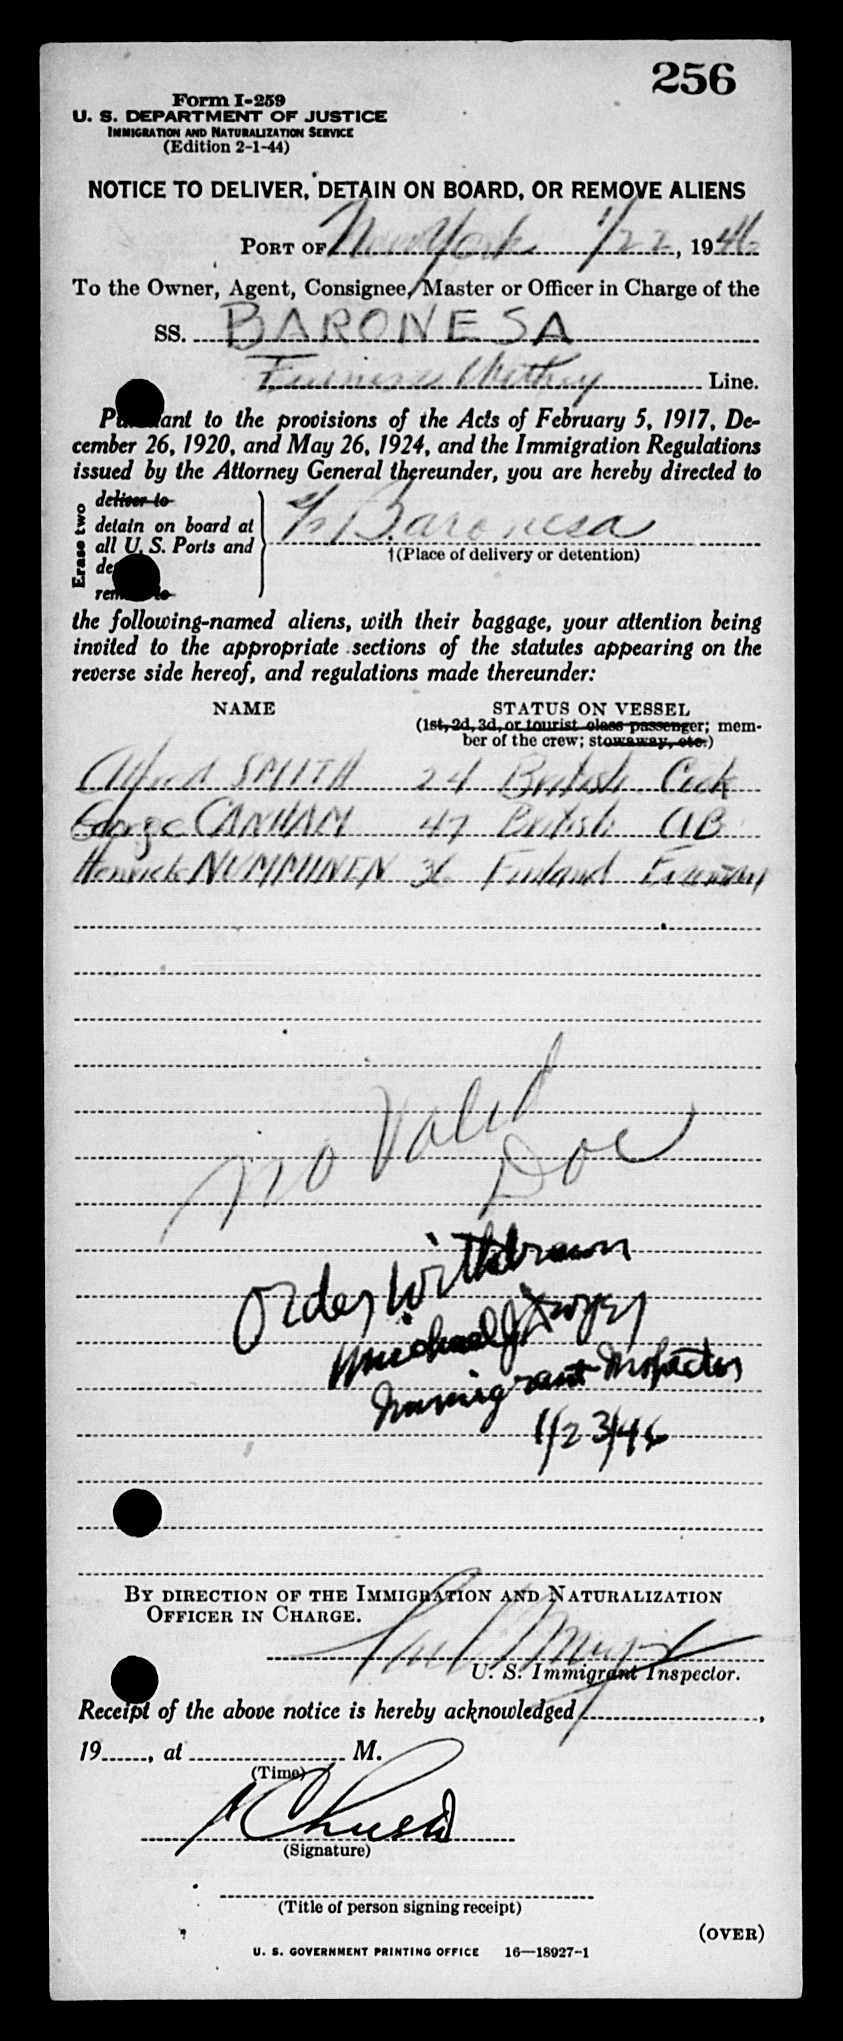 256
Form I-259
U. S. DEPARTMENT OF JUSTICE
IMMIGRATION AND NATURALIZATION SERVICE
(Edition 2-1-44)
NOTICE TO DELIVER, DETAIN ON BOARD, OR REMOVE ALIENS
PORT OF New York 1/22, 1946
To the Owner, Agent, Consignee, Master or Officer in Charge of the
SS. BARONESA
Line.
Pursuant to the provisions of the Acts of February 5, 1917, De-
cember 26, 1920, and May 26, 1924, and the Immigration Regulations
issued by the Attorney General thereunder, you are hereby directed to
Erase two
deliver to
detain on board at
all U. S. Ports and
Baronesa
†(Place of delivery or detention)
the following-named aliens, with their baggage, your attention being
invited to the appropriate sections of the statutes appearing on the
reverse side hereof, and regulations made thereunder:
NAME STATUS ON VESSEL
(1st, 2d, 3d, or tourist class passenger; mem-
ber of the crew; stowaway, etc.)
Alfred SMITH 24 British Cook
George CANHAM 47 British AB
NUMMINEN 36 Finland Fireman
no valid
Doc
Order Withdrawn
Michael J.
Immigrant Inspector
1/23/46
BY DIRECTION OF THE IMMIGRATION AND NATURALIZATION
OFFICER IN CHARGE.
U. S. Immigrant Inspector.
Receipt of the above notice is hereby acknowledged ,
19 , at M.
(Time)
(Signature)
(Title of person signing receipt)
(OVER)
U. S. GOVERNMENT PRINTING OFFICE 16—18927-1